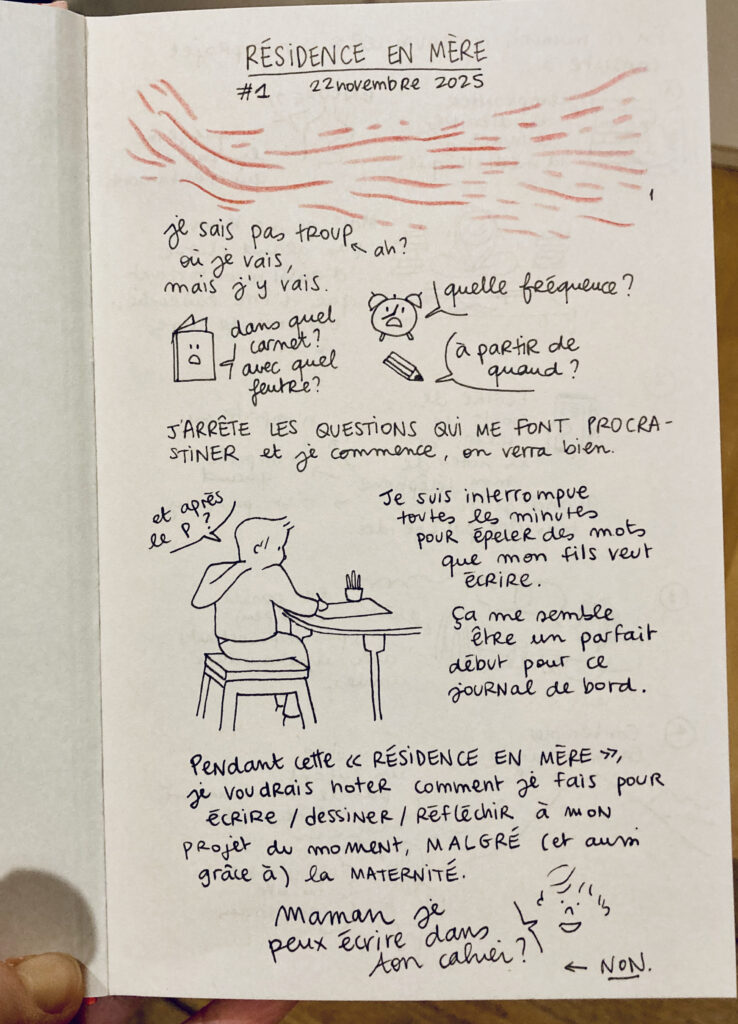 RÉSIDENCE EN MÈRE
#1 22 novembre 2025
1
je sais pas troup
ah?
où je vais,
mais j'y vais.
quelle fréquence?
dans quel
carnet?
avec quel
feutre?
à partir de
quand?
J'ARRÊTE LES QUESTIONS QUI ME FONT PROCRA-
STINER et je commence, on verra bien.
et après
le P?
Je suis interrompue
toutes les minutes
pour épeler des mots
que mon fils veut
écrire.
Ça me semble
être un parfait
début pour ce
journal de bord.
Pendant cette « RÉSIDENCE EN MÈRE »,
je voudrais noter comment je fais pour
écrire / dessiner / réfléchir à mon
projet du moment, MALGRÉ (et aussi
grâce à) la MATERNITÉ.
Maman je
peux écrire dans
ton cahier?
← NON.